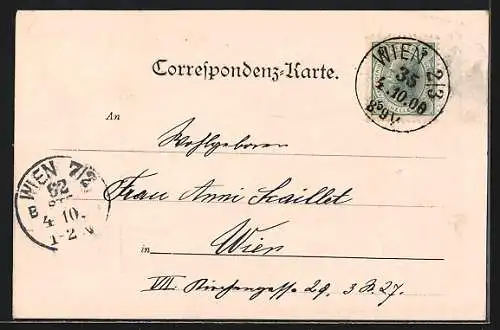 WIEN 2|3
35
4.10.00
8-9V
Correspondenz-Karte.
An
Wohlgeboren
WIEN 7/2
62
B
4 10.
1-2 N
Frau Anni Kaillet
in Wien
VII. Kirchengasse 29. 3 B. 27.